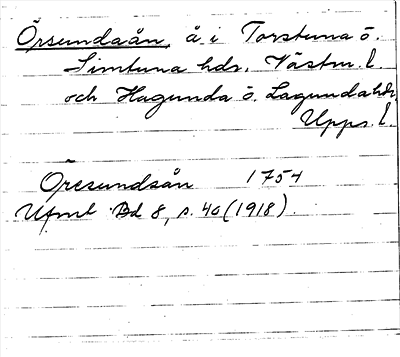 Örsundaån, å i Torstuna ö.
Simtuna hdr, Västm. l.
och Hagunda ö. Lagunda hdr,
Upps. l.
Öresundsån 1754
Ufmt Bd 8, s. 40 (1918).